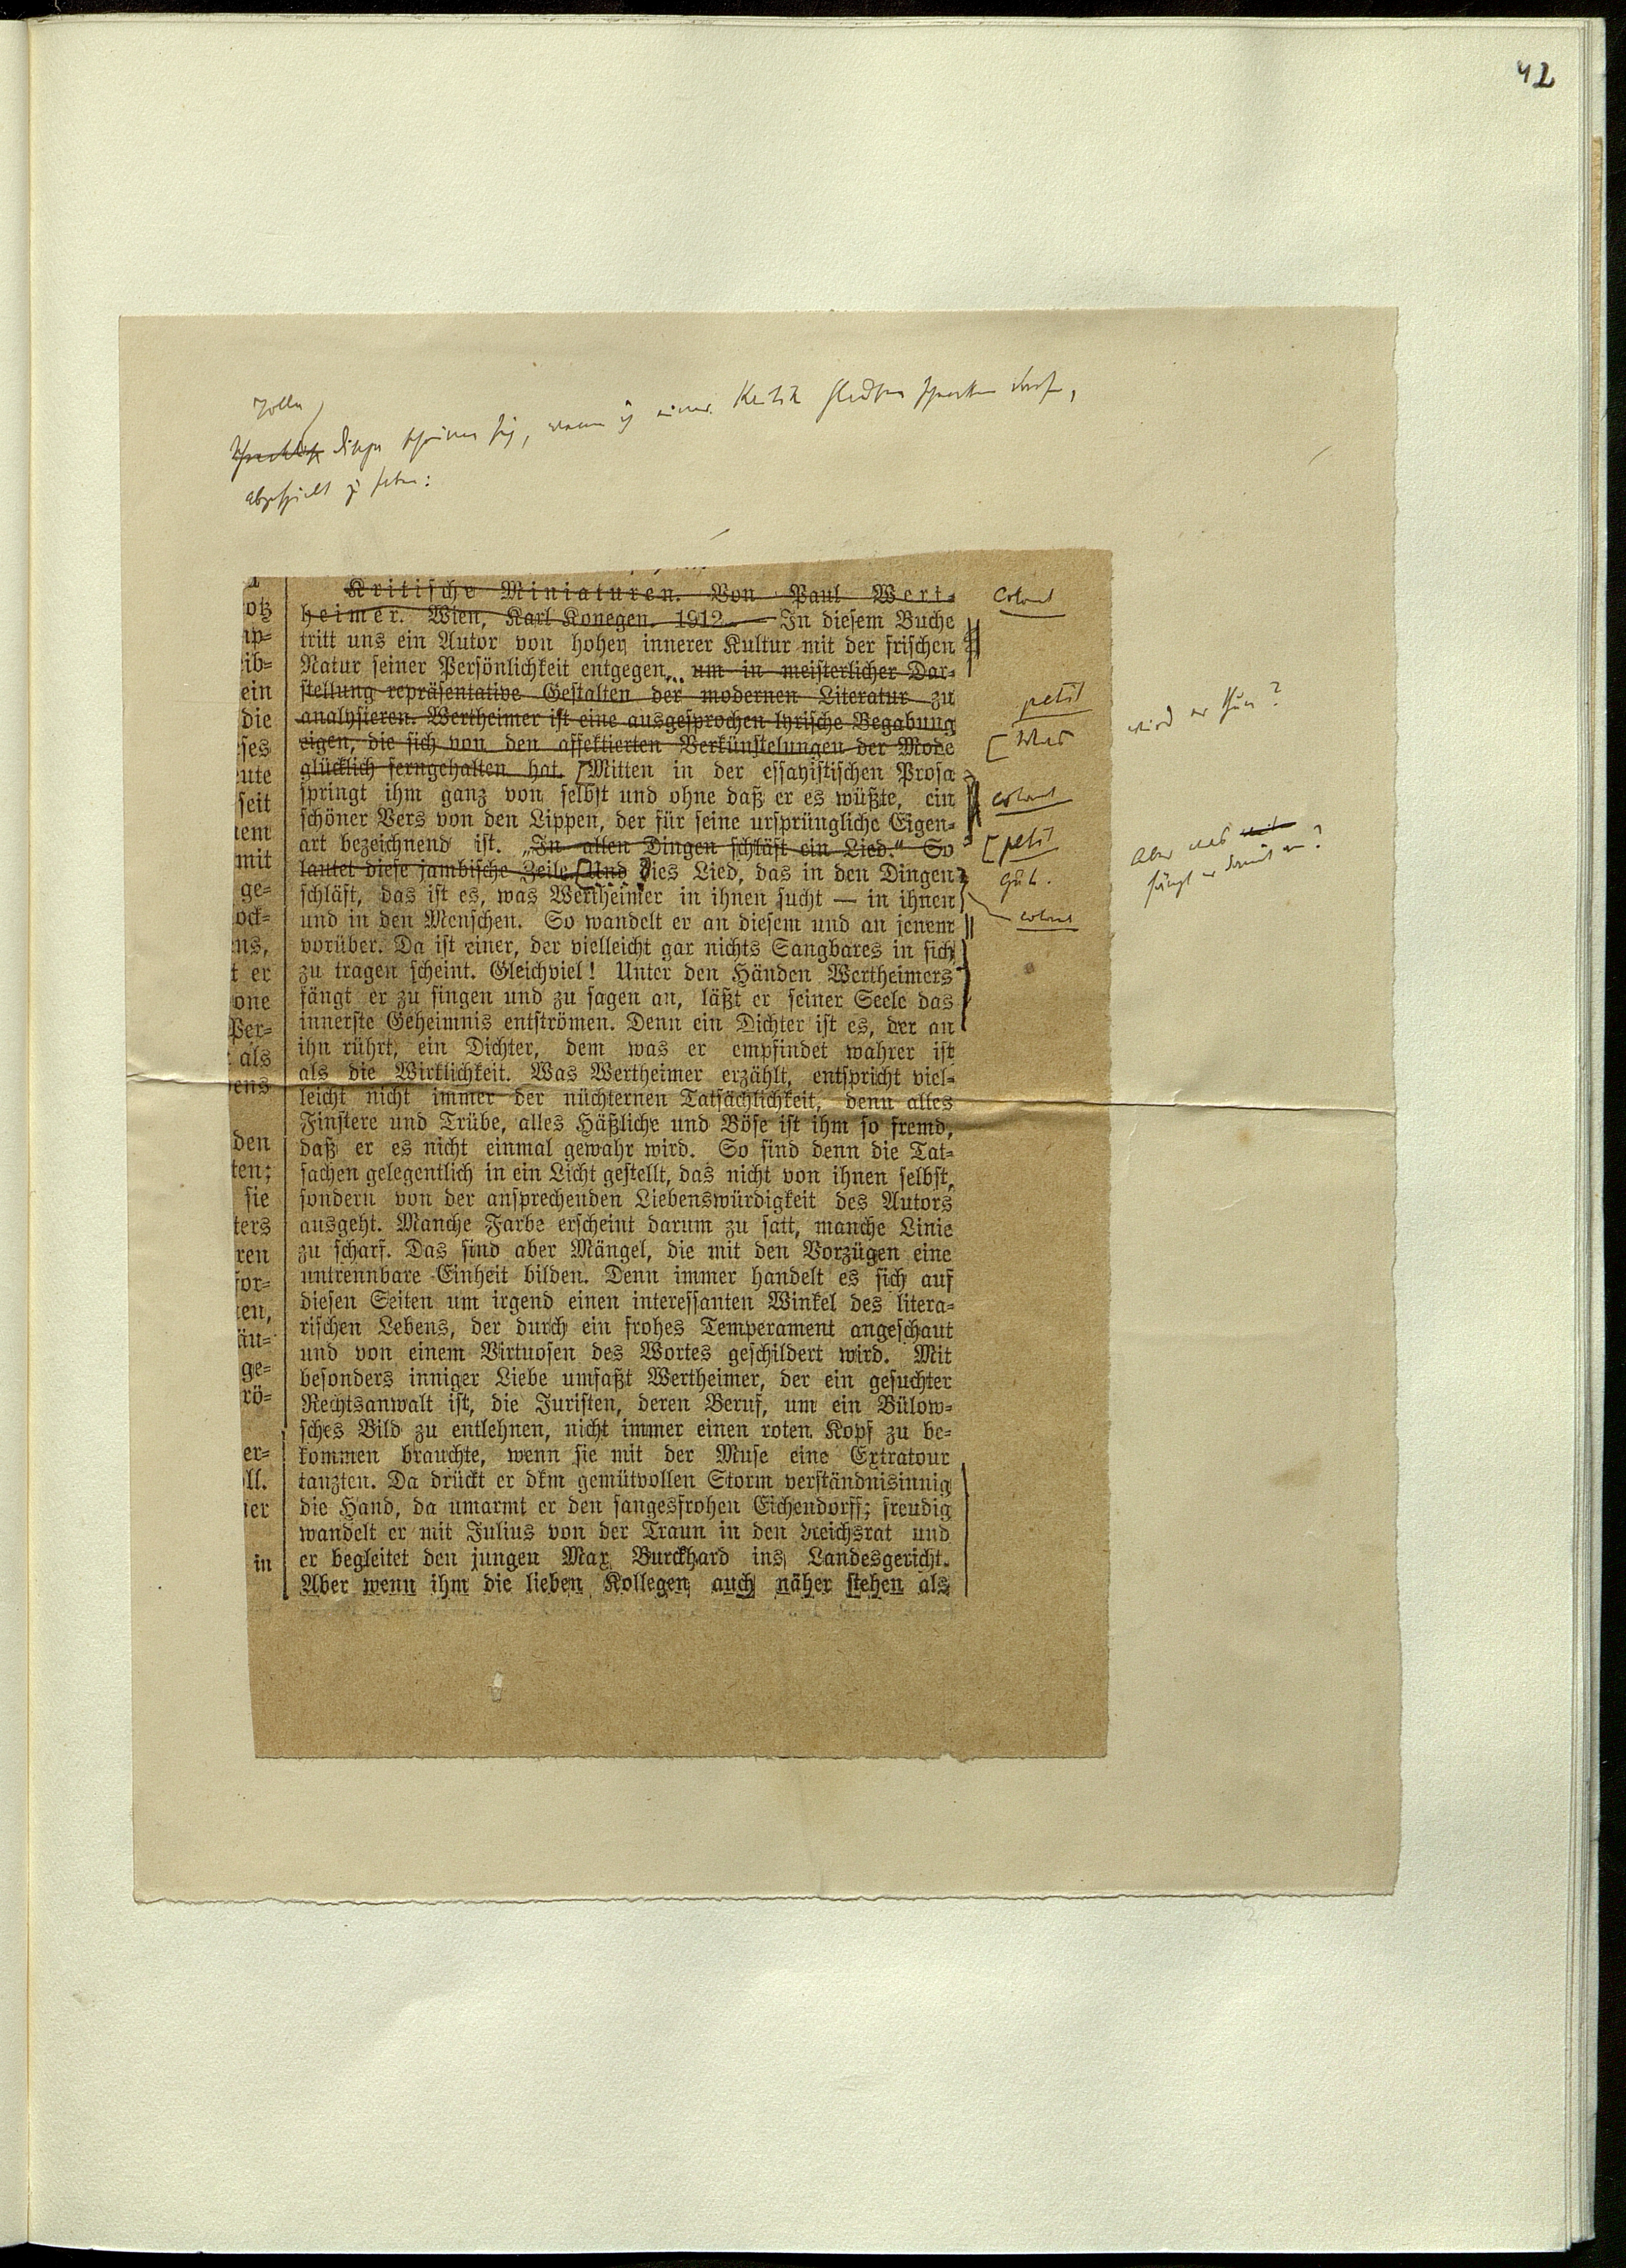 42
Kritische Miniaturen. Von Paul Wert-
heimer. Wien, Karl Konegen. 1912. — In diesem Buche
tritt uns ein Autor von hoher innerer Kultur mit der frischen
Natur seiner Persönlichkeit entgegen... um in meisterlicher Dar-
stellung repräsentative Gestalten der modernen Literatur zu
analysieren. Wertheimer ist eine ausgesprochen lyrische Begabung
eigen, die sich von den affektierten Verkünstelungen der Mode
glücklich ferngehalten hat. Mitten in der essayistischen Prosa
springt ihm ganz von selbst und ohne daß er es wüßte, ein
schöner Vers von den Lippen, der für seine ursprüngliche Eigen-
art bezeichnend ist. „In allen Dingen schläft ein Lied." So
lautet diese jambische Zeile. Und dies Lied, das in den Dingen
schläft, das ist es, was Wertheimer in ihnen sucht — in ihnen
und in den Menschen. So wandelt er an diesem und an jenem
vorüber. Da ist einer, der vielleicht gar nichts Sangbares in sich
zu tragen scheint. Gleichviel! Unter den Händen Wertheimers
fängt er zu singen und zu sagen an, läßt er seiner Seele das
innerste Geheimnis entströmen. Denn ein Dichter ist es, der an
ihn rührt, ein Dichter, dem was er empfindet wahrer ist
als die Wirklichkeit. Was Wertheimer erzählt, entspricht viel-
leicht nicht immer der nüchternen Tatsächlichkeit, denn alles
Finstere und Trübe, alles Häßliche und Böse ist ihm so fremd,
daß er es nicht einmal gewahr wird. So sind denn die Tat-
sachen gelegentlich in ein Licht gestellt, das nicht von ihnen selbst,
sondern von der ansprechenden Liebenswürdigkeit des Autors
ausgeht. Manche Farbe erscheint darum zu satt, manche Linie
zu scharf. Das sind aber Mängel, die mit den Vorzügen eine
untrennbare Einheit bilden. Denn immer handelt es sich auf
diesen Seiten um irgend einen interessanten Winkel des litera-
rischen Lebens, der durch ein frohes Temperament angeschaut
und von einem Virtuosen des Wortes geschildert wird. Mit
besonders inniger Liebe umfaßt Wertheimer, der ein gesuchter
Rechtsanwalt ist, die Juristen, deren Beruf, um ein Bülow-
sches Bild zu entlehnen, nicht immer einen roten Kopf zu be-
kommen brauchte, wenn sie mit der Muse eine Extratour
tanzten. Da drückt er dkm gemütvollen Storm verständnisinnig
die Hand, da umarmt er den sangesfrohen Eichendorff; freudig
wandelt er mit Julius von der Traun in den Reichsrat und
er begleitet den jungen Max Burckhard ins Landesgericht.
Aber wenn ihm die lieben Kollegen auch näher stehen als
otz
ip-
eib-
ein
die
eses
eute
seit
nem
mit
ge-
ock-
ns,
t er
one
Per-
als
ens
den
ten;
sie
ters
ren
for-
en,
äu-
ge-
rö-
er-
ll.
ner
in
Colonel
petit
Was wird er thun?
colonel
petit
Gut. Aber was
fängt er damit an?
colonel